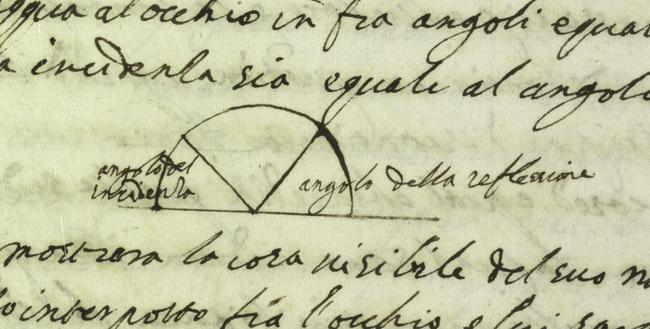 al occhio in fra angoli equa
a incidentia sia equale al angolo
angolo del
incidentia
angolo della reflessione
mostrera la cosa visibile del suo
interposto fra l'occhio e